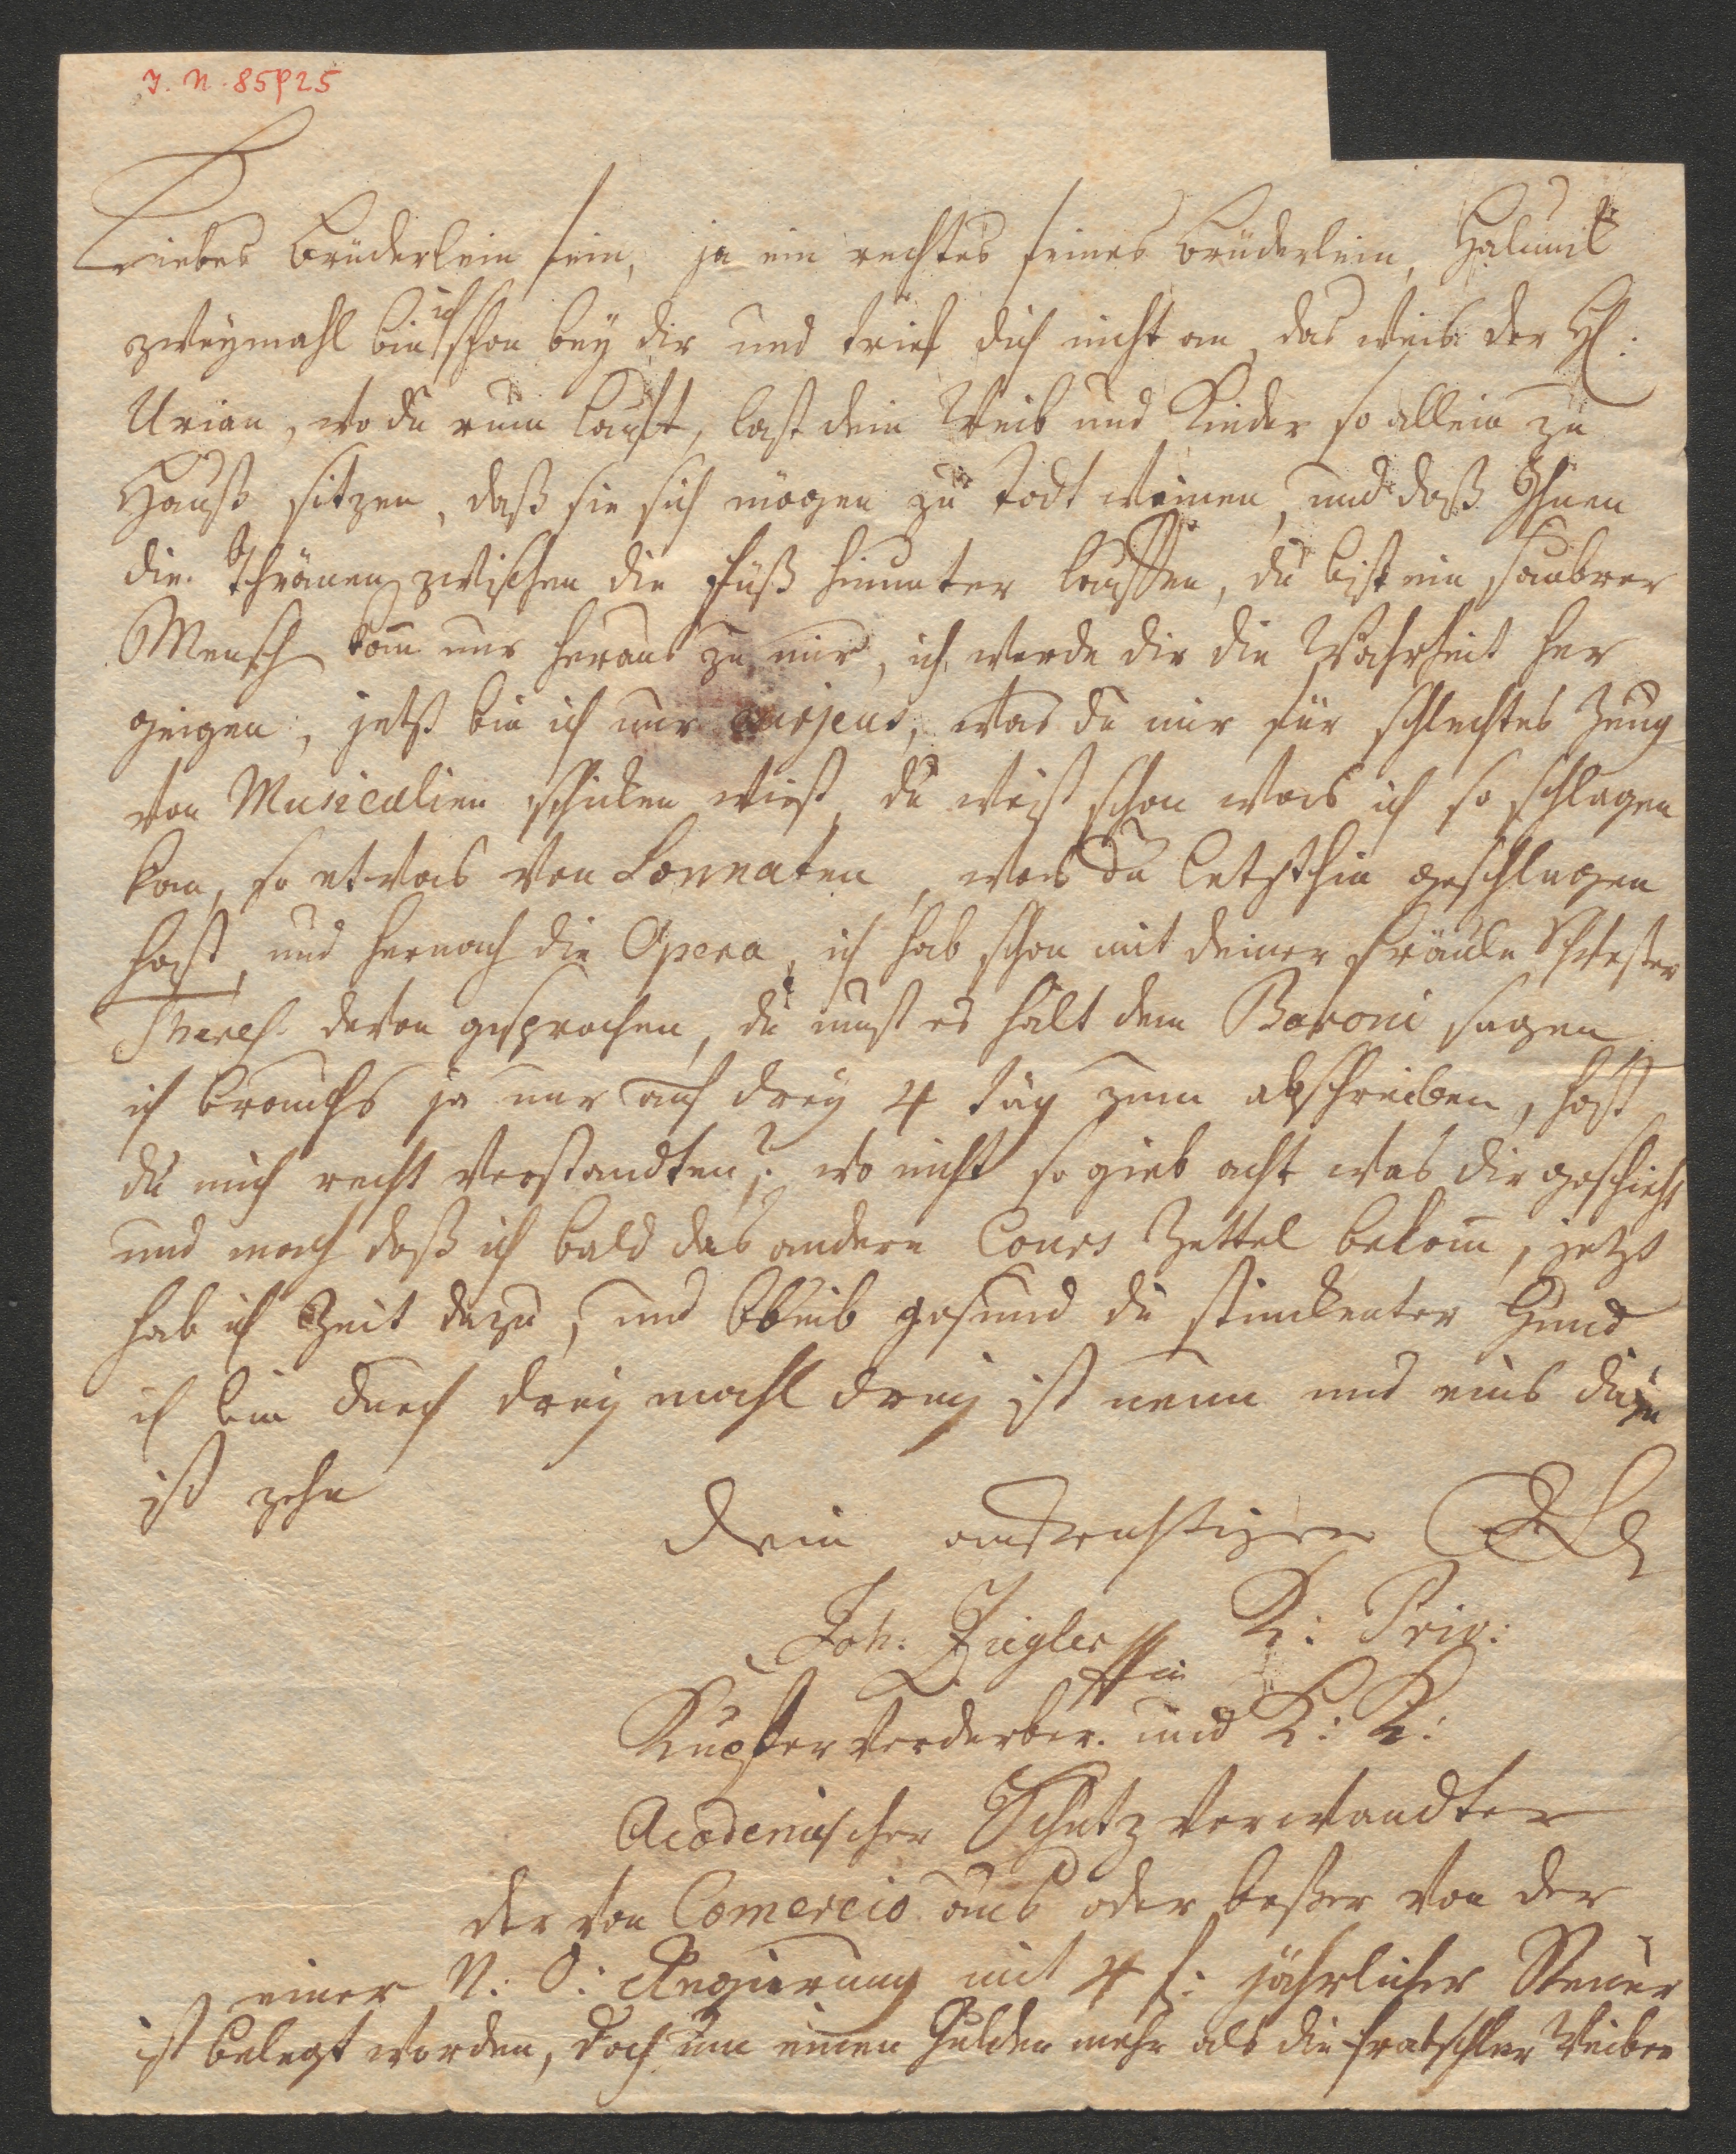 I. N. 85925
Liebes Brüderlein fein, ja ein rechtes feines Brüderlein, Halunk
zweymahl bin ich schon bey dir und trief dich nicht an, das weis der H:
Urian, wo du rum laufst, last dein Weib und Kinder so allein zu
Hauß sitzen, daß sie sich mögen zu todt weinen, und daß Ihnen
die Thränen zwischen die Füß hinunter lauffen, du bist ein saubrer
Mensch kom̄ nur heraus zu mir, ich werde dir die Wahrheit her
geigen, jetzt bin ich nur curjeus, was du mir für schlechtes Zeug
von Musicalien schicken wirst, du weist schon was ich so schlagen
kan, so etwas von Sonnaten, was du letzthin geschlagen
hast, und hernach die Opera, ich hab schon mit deiner Fräule Schwester
Theres. davon gesprochen, du must es halt dem Baroni sagen
ich brauchs ja nur auf drey 4 täg zum abschreiben, hast
du mich recht verstandten? wo nicht so gieb acht was dir geschieht
und mach daß ich bald das andere Cours Zettel bekom̄, jetzt
hab ich Zeit dazu, und bleib gesund du stinckenter Hund
ich bin durch drey mahl drey ist neun und eins dazu
ist zehn
dein aufrechtiger
Joh. Ziegler K: Priv:
Kupfer Verderber. und K: K:
Academischer Schutz verwandter
der von Comercio aus oder besser von der
einer N: Ö: Regierung mit 4 f: jährlicher Steuer
ist belegt worden, doch um einen Gulden mehr als die fratschler Weiber